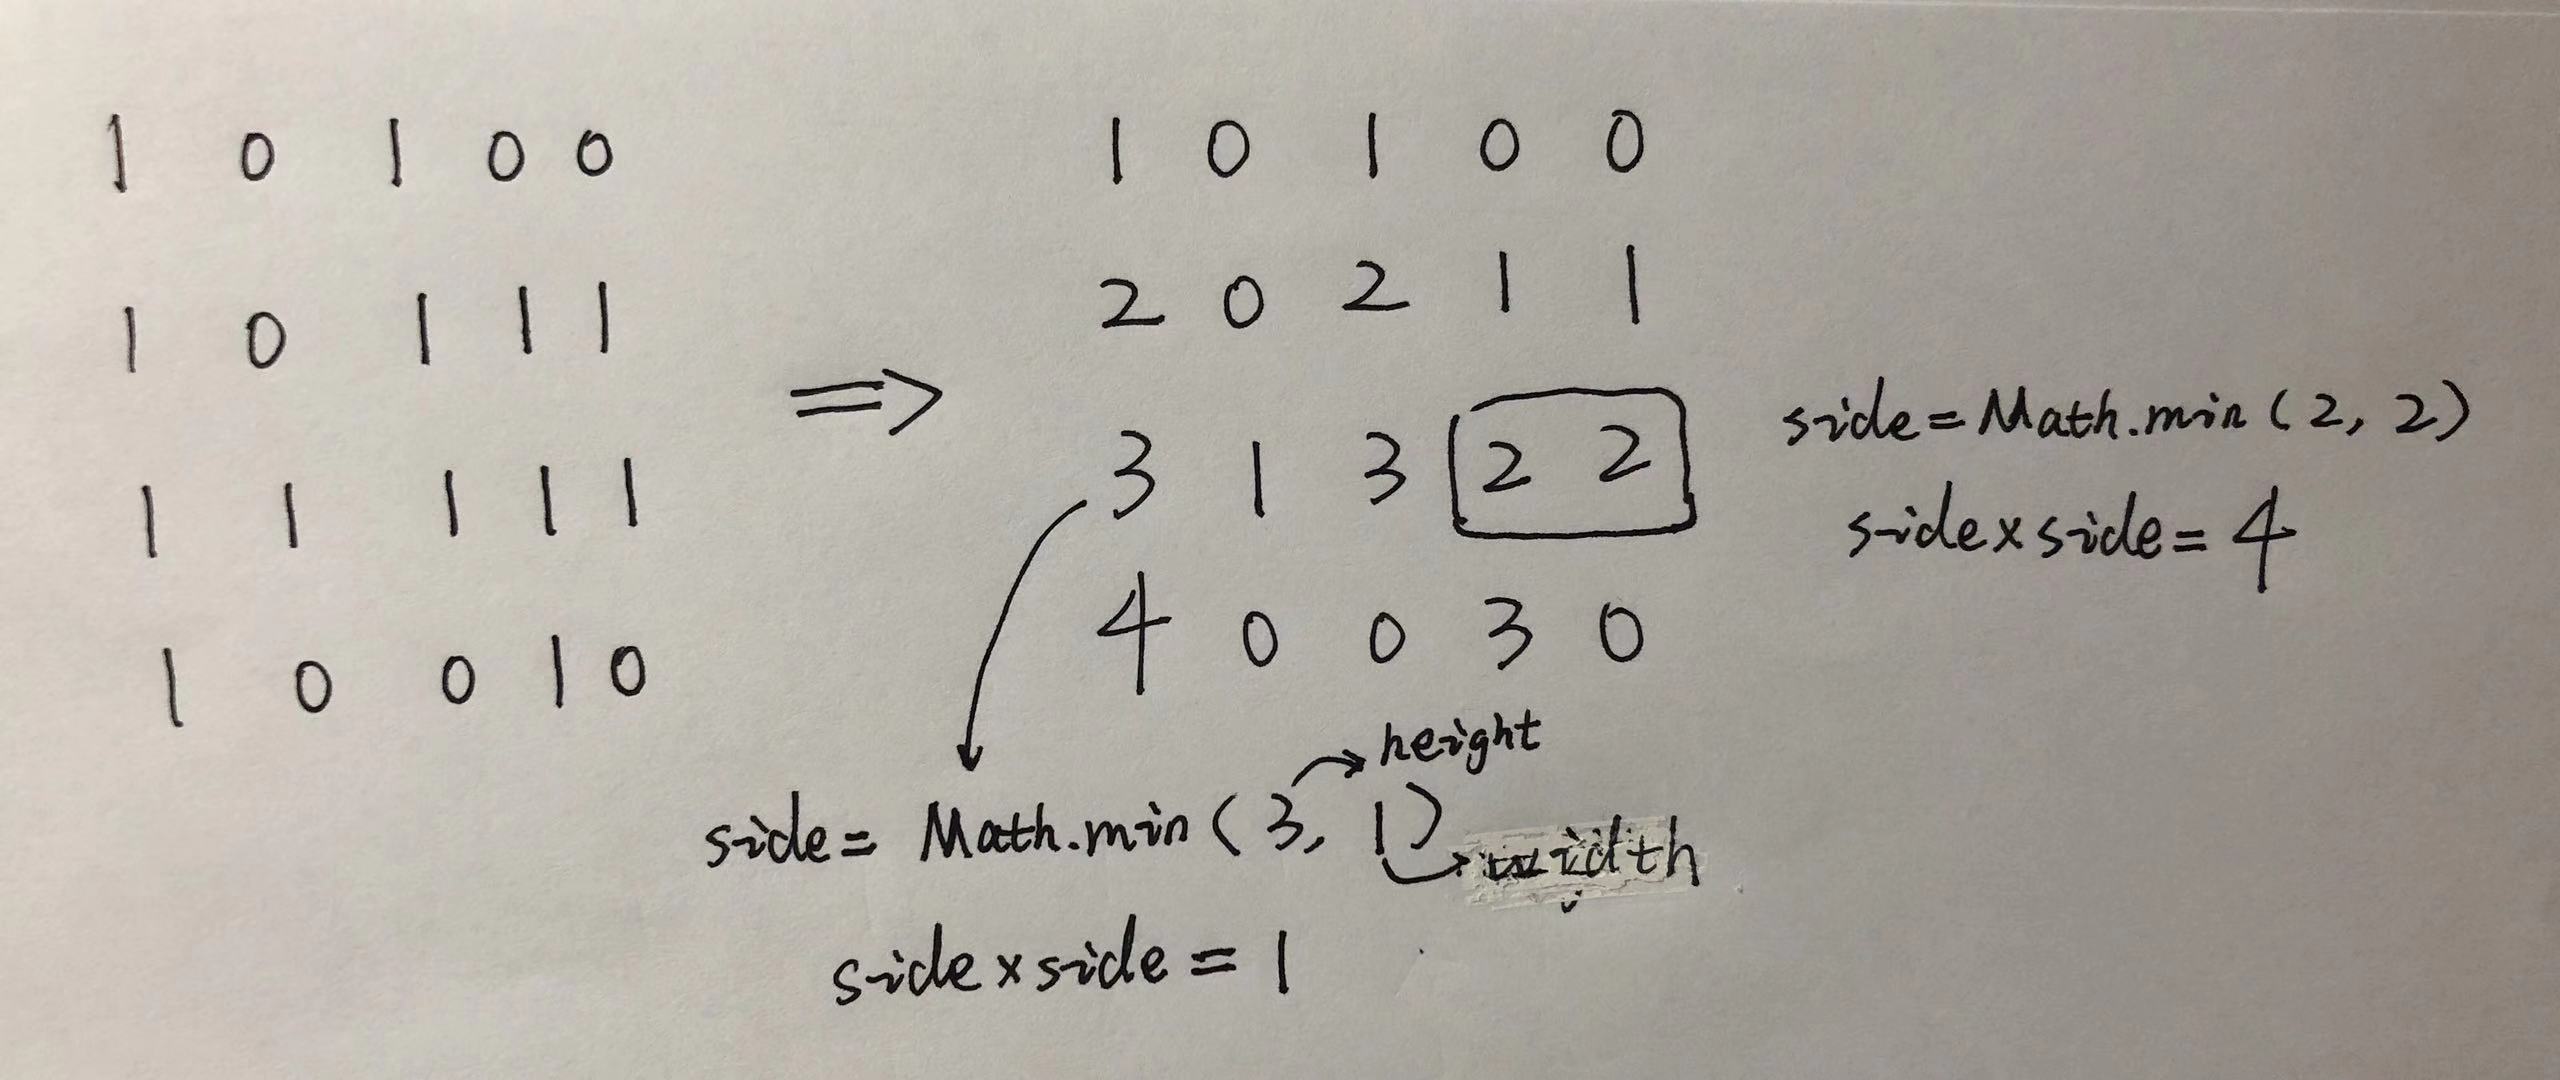 1 0 1 0 0
1 0 1 1 1
1 1 1 1 1
1 0 0 1 0
=>
1 0 1 0 0
2 0 2 1 1
3 1 3 2 2
4 0 0 3 0
side = Math.min (2, 2)
side x side = 4
height
side = Math.min (3, 1)
width
side x side = 1